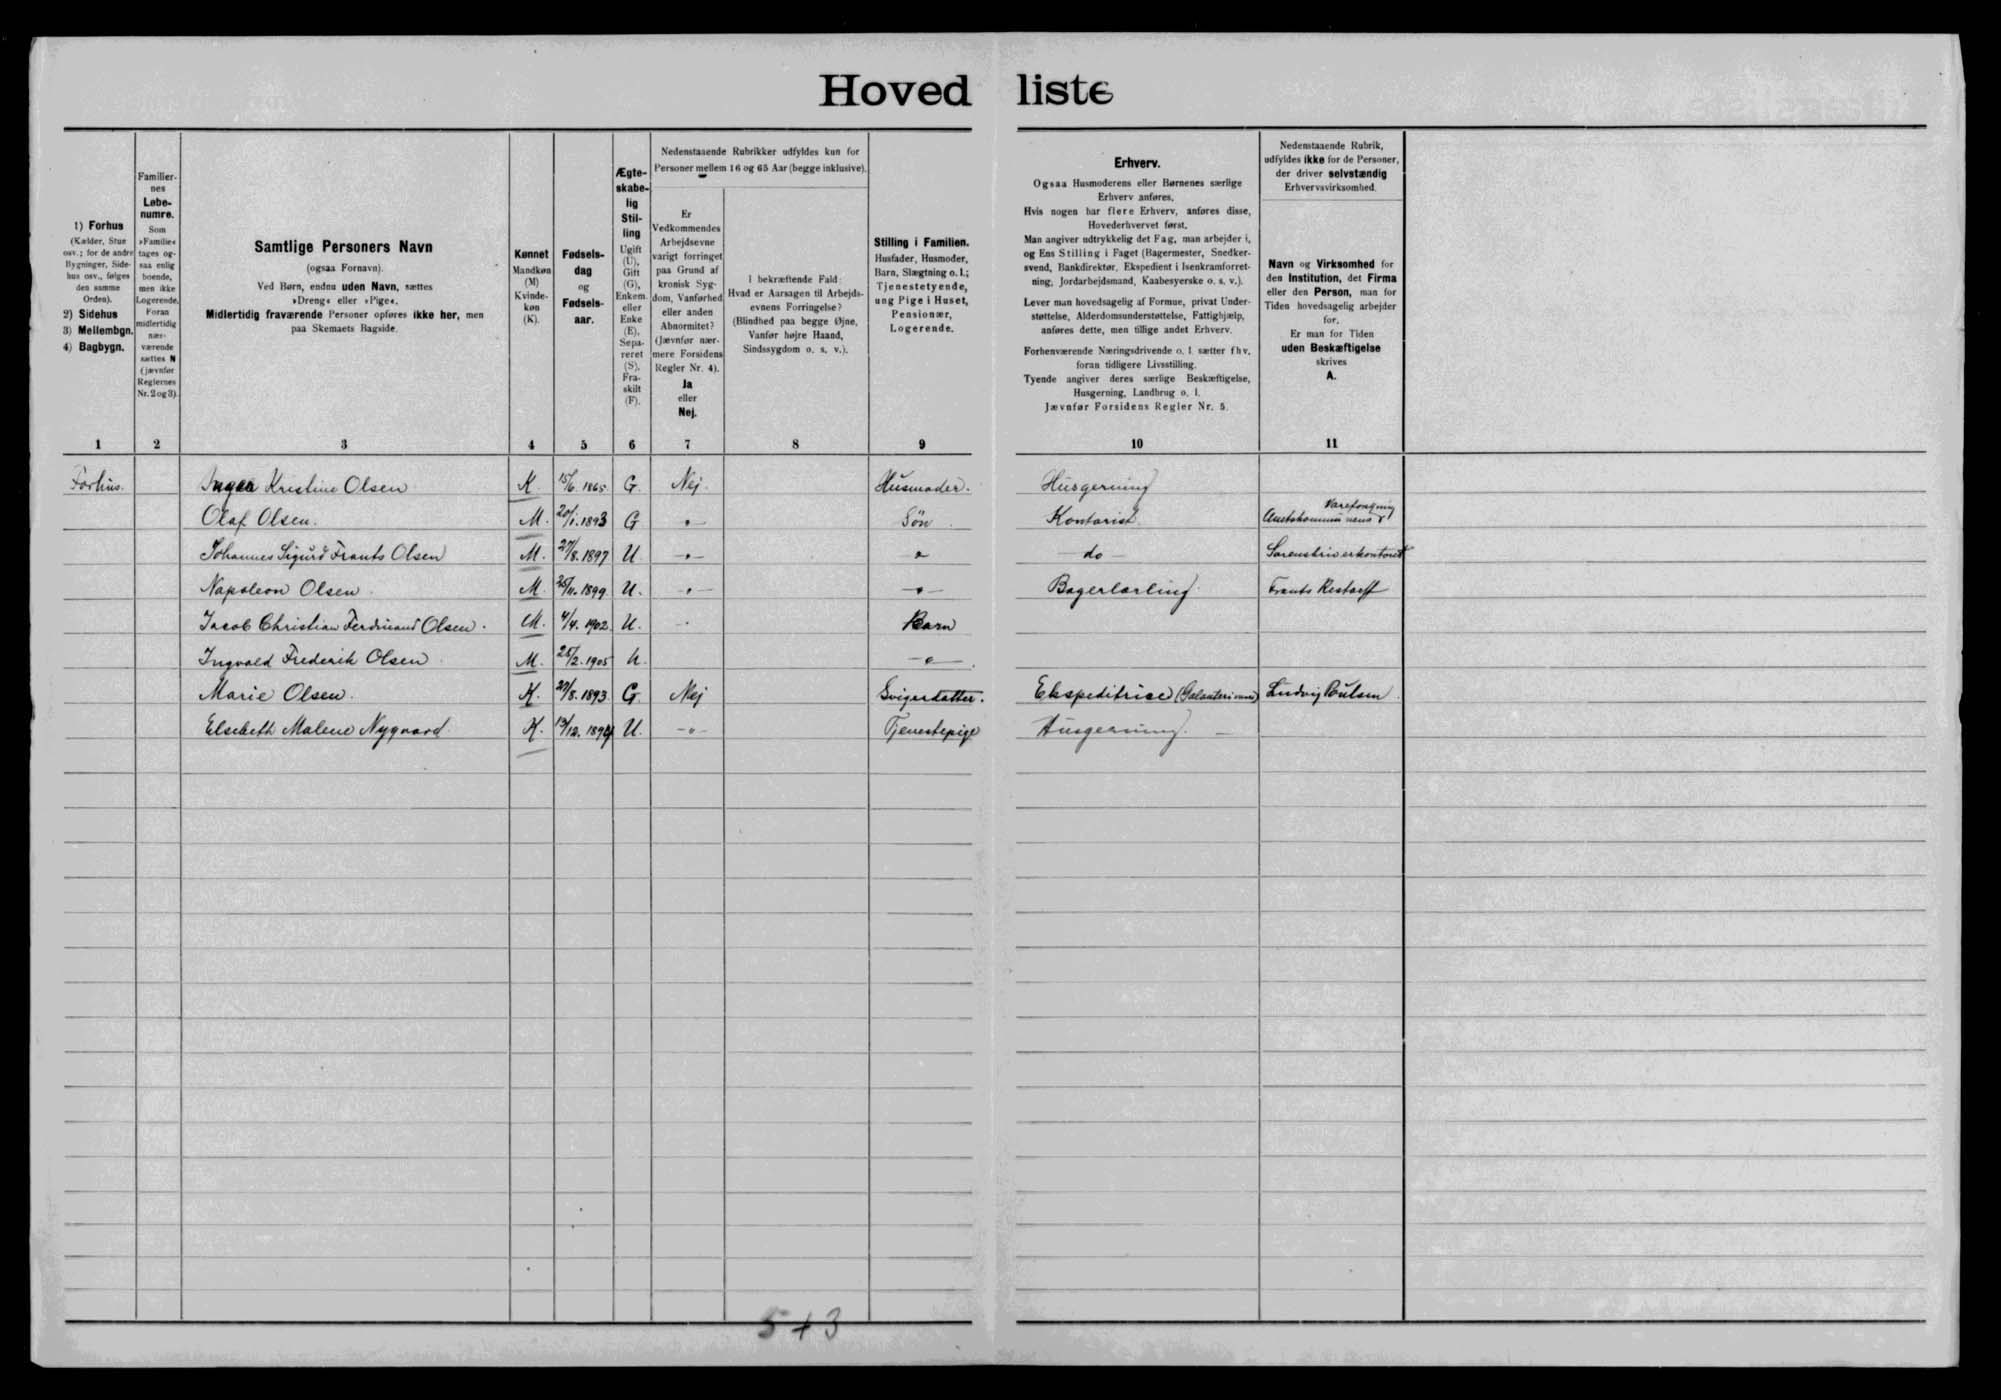 Hovedliste
1) Forhus
(Kælder, Stue
osv.; for de andre
Bygninger, Side-
hus osv., følges
den samme
Orden).
2) Sidehus
3) Mellembgn.
4) Bagbygn.
Familier-
nes
Løbe-
numre.
Som
»Familie«
tages og-
saa enlig
boende,
men ikke
Logerende.
Foran
midlertidig
nær-
værende
sættes N
(jævnfør
Reglernes
Nr. 2 og 3).
Samtlige Personers Navn
(ogsaa Fornavn).
Ved Børn, endnu uden Navn, sættes
»Dreng« eller »Pige«.
Midlertidig fraværende Personer opføres ikke her, men
paa Skemaets Bagside.
Kønnet
Mandkøn
(M)
Kvinde-
køn
(K).
Fødsels-
dag
og
Fødsels-
aar.
Ægte-
skabe-
lig
Stil-
ling
Ugift
(U),
Gift
(G),
Enkem.
eller
Enke
(E),
Sepa-
reret
(S),
Fra-
skilt
(F).
Nedenstaaende Rubrikker udfyldes kun for
Personer mellem 16 og 65 Aar (begge inklusive).
Er
Vedkommendes
Arbejdsevne
varigt forringet
paa Grund af
kronisk Syg-
dom, Vanførhed
eller anden
Abnormitet?
(Jævnfør nær-
mere Forsidens
Regler Nr. 4).
Ja
eller
Nej.
I bekræftende Fald:
Hvad er Aarsagen til Arbejds-
evnens Forringelse?
(Blindhed paa begge Øjne,
Vanfør højre Haand,
Sindssygdom o. s. v.).
Stilling i Familien.
Husfader, Husmoder,
Barn, Slægtning o. l.;
Tjenestetyende,
ung Pige i Huset,
Pensionær,
Logerende.
Erhverv.
Ogsaa Husmoderens eller Børnenes særlige
Erhverv anføres.
Hvis nogen har flere Erhverv, anføres disse,
Hovederhvervet først.
Man angiver udtrykkelig det Fag, man arbejder i,
og Ens Stilling i Faget (Bagermester, Snedker-
svend, Bankdirektør, Ekspedient i Isenkramforret-
ning, Jordarbejdsmand, Kaabesyerske o. s. v.).
Lever man hovedsagelig af Formue, privat Under-
støttelse, Alderdomsunderstøttelse, Fattighjælp,
anføres dette, men tillige andet Erhverv.
Forhenværende Næringsdrivende o. l. sætter fhv.
foran tidligere Livsstilling.
Tyende angiver deres særlige Beskæftigelse,
Husgerning, Landbrug o. l.
Jævnfør Forsidens Regler Nr. 5.
Nedenstaaende Rubrik,
udfyldes ikke for de Personer,
der driver selvstændig
Erhvervsvirksomhed.
Navn og Virksomhed for
den Institution, det Firma
eller den Person, man for
Tiden hovedsagelig arbejder
for.
Er man for Tiden
uden Beskæftigelse
skrives
A.
1 2 3 4 5 6 7 8 9 10 11
Forhus. Inger Kristine Olsen K. 15/6. 1865. G. Nej. Husmoder. Husgerning
Olaf Olsen. M. 20/1. 1893 G -"- Søn Kontorist Amtskommunens Vareforsyning
Johannes Sigurd Frants Olsen M. 27/8. 1897 U -"- " do - Sorenskriverkontoret
Napoleon Olsen M. 25/11. 1899. U. -"- -"- Bagerlærling. Frants Restorff
Jacob Christian Ferdinand Olsen. M. 4/4. 1902. U. - Barn
Ingvald Frederik Olsen M. 25/2. 1905 U. -"-
Marie Olsen. K. 29/8. 1893. G. Nej Svigerdatter. Ekspeditrice (Galanterivarer) Ludvig Poulsen.
Elsebeth Malene Nygaard. K. 19/12. 1894 U. -"- Tjenestepige Husgerning. -
5+3